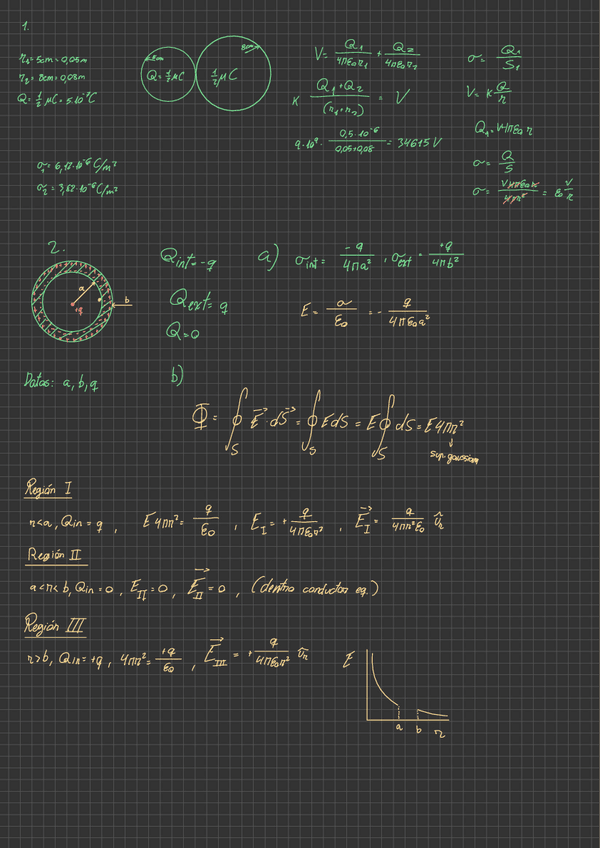 1.
r₁ = 5cm = 0,05m
r₂ = 8cm = 0,08m
Q = 1/2 μC = 5·10⁻⁷C
5cm
8cm
Q = 1/2 μC
1/2 μC
V = Q₁/4πε₀r₁ + Q₂/4πε₀r₂
K (Q₁+Q₂)/(r₁+r₂) = V
9·10⁹ · 0,5·10⁻⁶/0,05+0,08 = 34615 V
σ = Q₁/S₁
V = K Q/r
Q₁ = V4πε₀ r
σ = Q/S
σ = V4πε₀r/4πr² = ε₀ V/r
σ₁ = 6,12·10⁻⁶ C/m²
σ₂ = 3,82·10⁻⁶ C/m²
2.
a
+q
b
Qint = -q
Qext = q
Q = 0
a) σint = -q/4πa² , σext = +q/4πb²
E = σ/ε₀ = - q/4πε₀a²
Datos: a, b, q
b)
Φ = ∮S E⃗·dS⃗ = ∮S EdS = E ∮S dS = E4πr²
sup. gaussiana
Región I
r<a, Qin = q , E4πr² = q/ε₀ , E_I = + q/4πε₀r² , E⃗_I = q/4πr²ε₀ û_r
Región II
a<r<b, Qin = 0 , E_II = 0 , E⃗_II = 0 , (dentro conductor eq.)
Región III
r>b, Qin = +q , 4πr² = +q/ε₀ , E⃗_III = + q/4πε₀r² û_r
E
a b r